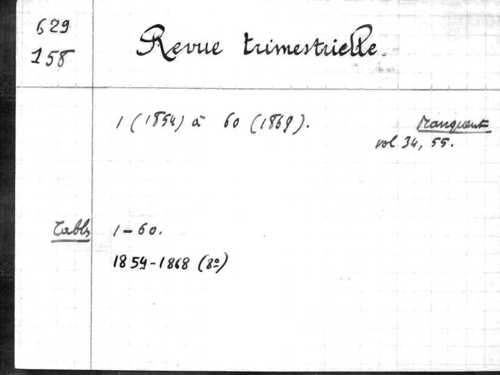 629
158
Revue trimestrielle.
1 (1854) à 60 (1869).
Manquent
vol 34, 55.
Tables
1-60.
1854-1868 (8º)